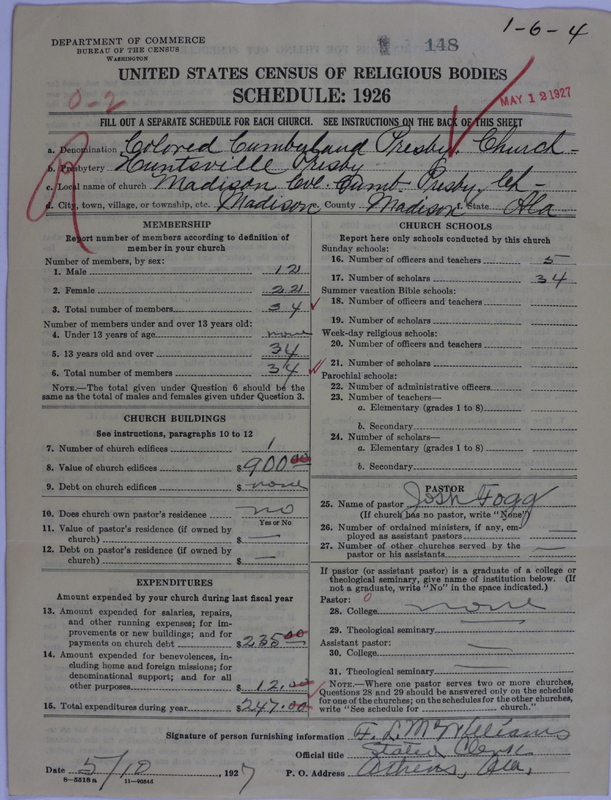 1-6-4
DEPARTMENT OF COMMERCE
BUREAU OF THE CENSUS
WASHINGTON
148
UNITED STATES CENSUS OF RELIGIOUS BODIES
SCHEDULE: 1926
MAY 12 1927
0-2
FILL OUT A SEPARATE SCHEDULE FOR EACH CHURCH. SEE INSTRUCTIONS ON THE BACK OF THIS SHEET
R
a. Denomination Colored Cumberland Presby. Church-
b. Presbytery Huntsville Presby
c. Local name of church Madison Cumb. Presby. Ch-
d. City, town, village, or township, etc. Madison e. County Madison f. State Ala
MEMBERSHIP
Report number of members according to definition of
member in your church
Number of members, by sex:
1. Male 12
2. Female 22
3. Total number of members 34
Number of members under and over 13 years old:
4. Under 13 years of age none
5. 13 years old and over 34
6. Total number of members 34
NOTE.—The total given under Question 6 should be the
same as the total of males and females given under Question 3.
CHURCH BUILDINGS
See instructions, paragraphs 10 to 12
7. Number of church edifices 1
8. Value of church edifices $900.00
9. Debt on church edifices $ none
10. Does church own pastor's residence no
Yes or No
11. Value of pastor's residence (if owned by
church) $ —
12. Debt on pastor's residence (if owned by
church) $ —
EXPENDITURES
Amount expended by your church during last fiscal year
13. Amount expended for salaries, repairs,
and other running expenses; for im-
provements or new buildings; and for
payments on church debt $235.00
14. Amount expended for benevolences, in-
cluding home and foreign missions; for
denominational support; and for all
other purposes $12.00
15. Total expenditures during year $247.00
CHURCH SCHOOLS
Report here only schools conducted by this church
Sunday schools:
16. Number of officers and teachers 5
17. Number of scholars 34
Summer vacation Bible schools:
18. Number of officers and teachers
19. Number of scholars
Week-day religious schools:
20. Number of officers and teachers
21. Number of scholars
Parochial schools:
22. Number of administrative officers
23. Number of teachers—
a. Elementary (grades 1 to 8)
b. Secondary
24. Number of scholars—
a. Elementary (grades 1 to 8)
b. Secondary
PASTOR
25. Name of pastor Josh Fogg
(If church has no pastor, write "None")
26. Number of ordained ministers, if any, em-
ployed as assistant pastors —
27. Number of other churches served by the
pastor or his assistants —
If pastor (or assistant pastor) is a graduate of a college or
theological seminary, give name of institution below. (If
not a graduate, write "No" in the space indicated.)
Pastor: 0
28. College none
29. Theological seminary —
Assistant pastor:
30. College —
31. Theological seminary —
NOTE.—Where one pastor serves two or more churches,
Questions 28 and 29 should be answered only on the schedule
for one of the churches; on the schedules for the other churches,
write "See schedule for church."
Signature of person furnishing information McWilliams
Official title Stated Clerk
Date 5/10, 1927 P. O. Address Athens, Ala,
8-5518a 11-90545